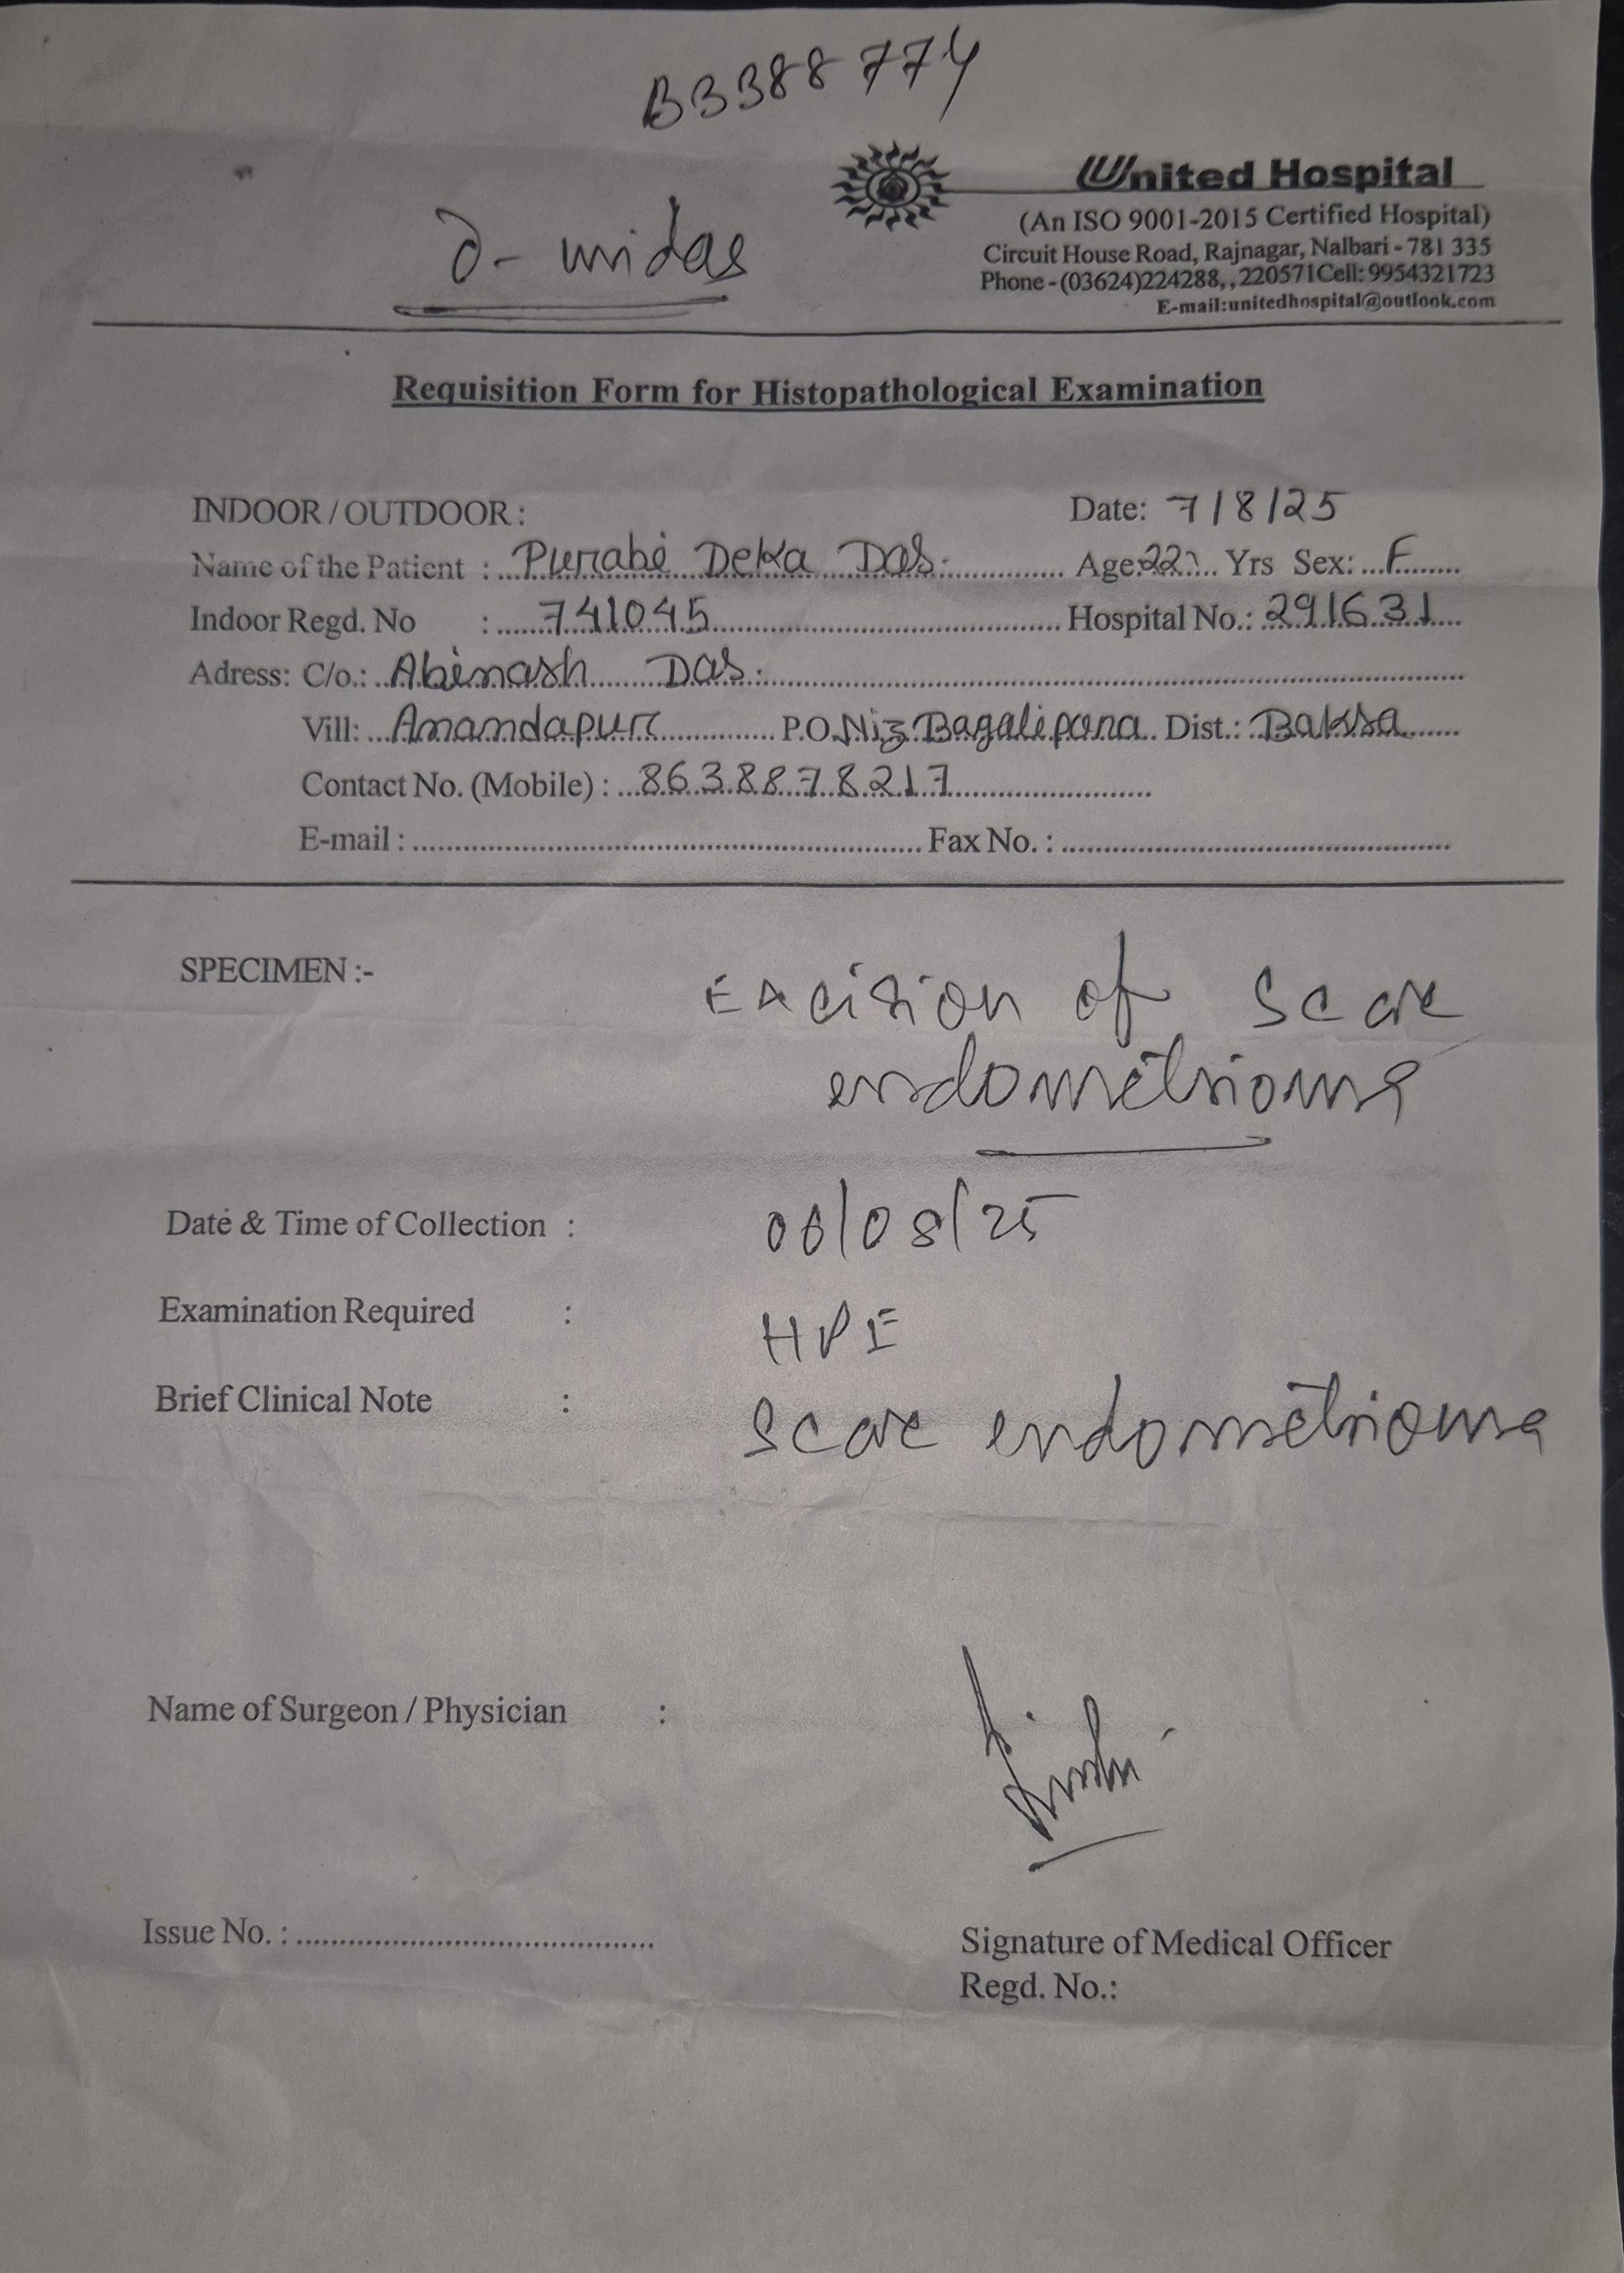 B3388774
United Hospital
(An ISO 9001-2015 Certified Hospital)
Circuit House Road, Rajnagar, Nalbari - 781 335
Phone - (03624)224288, , 220571Cell: 9954321723
E-mail:unitedhospital@outlook.com
Requisition Form for Histopathological Examination
INDOOR / OUTDOOR : Date: 7/8/25
Name of the Patient : Purabi Deka Das. Age: 22 Yrs Sex: F
Indoor Regd. No : 741045 Hospital No.: 291631
Adress: C/o.: Abinash Das.
Vill: Anandapur P.O. Niz Bagalipara Dist.: Baksa
Contact No. (Mobile) : 8638878217
E-mail : Fax No. :
SPECIMEN :- Excision of Scar
endometrioma
Date & Time of Collection : 06/08/25
Examination Required : HPE
Brief Clinical Note : Scar endometrioma
Name of Surgeon / Physician :
Issue No. : Signature of Medical Officer
Regd. No.: